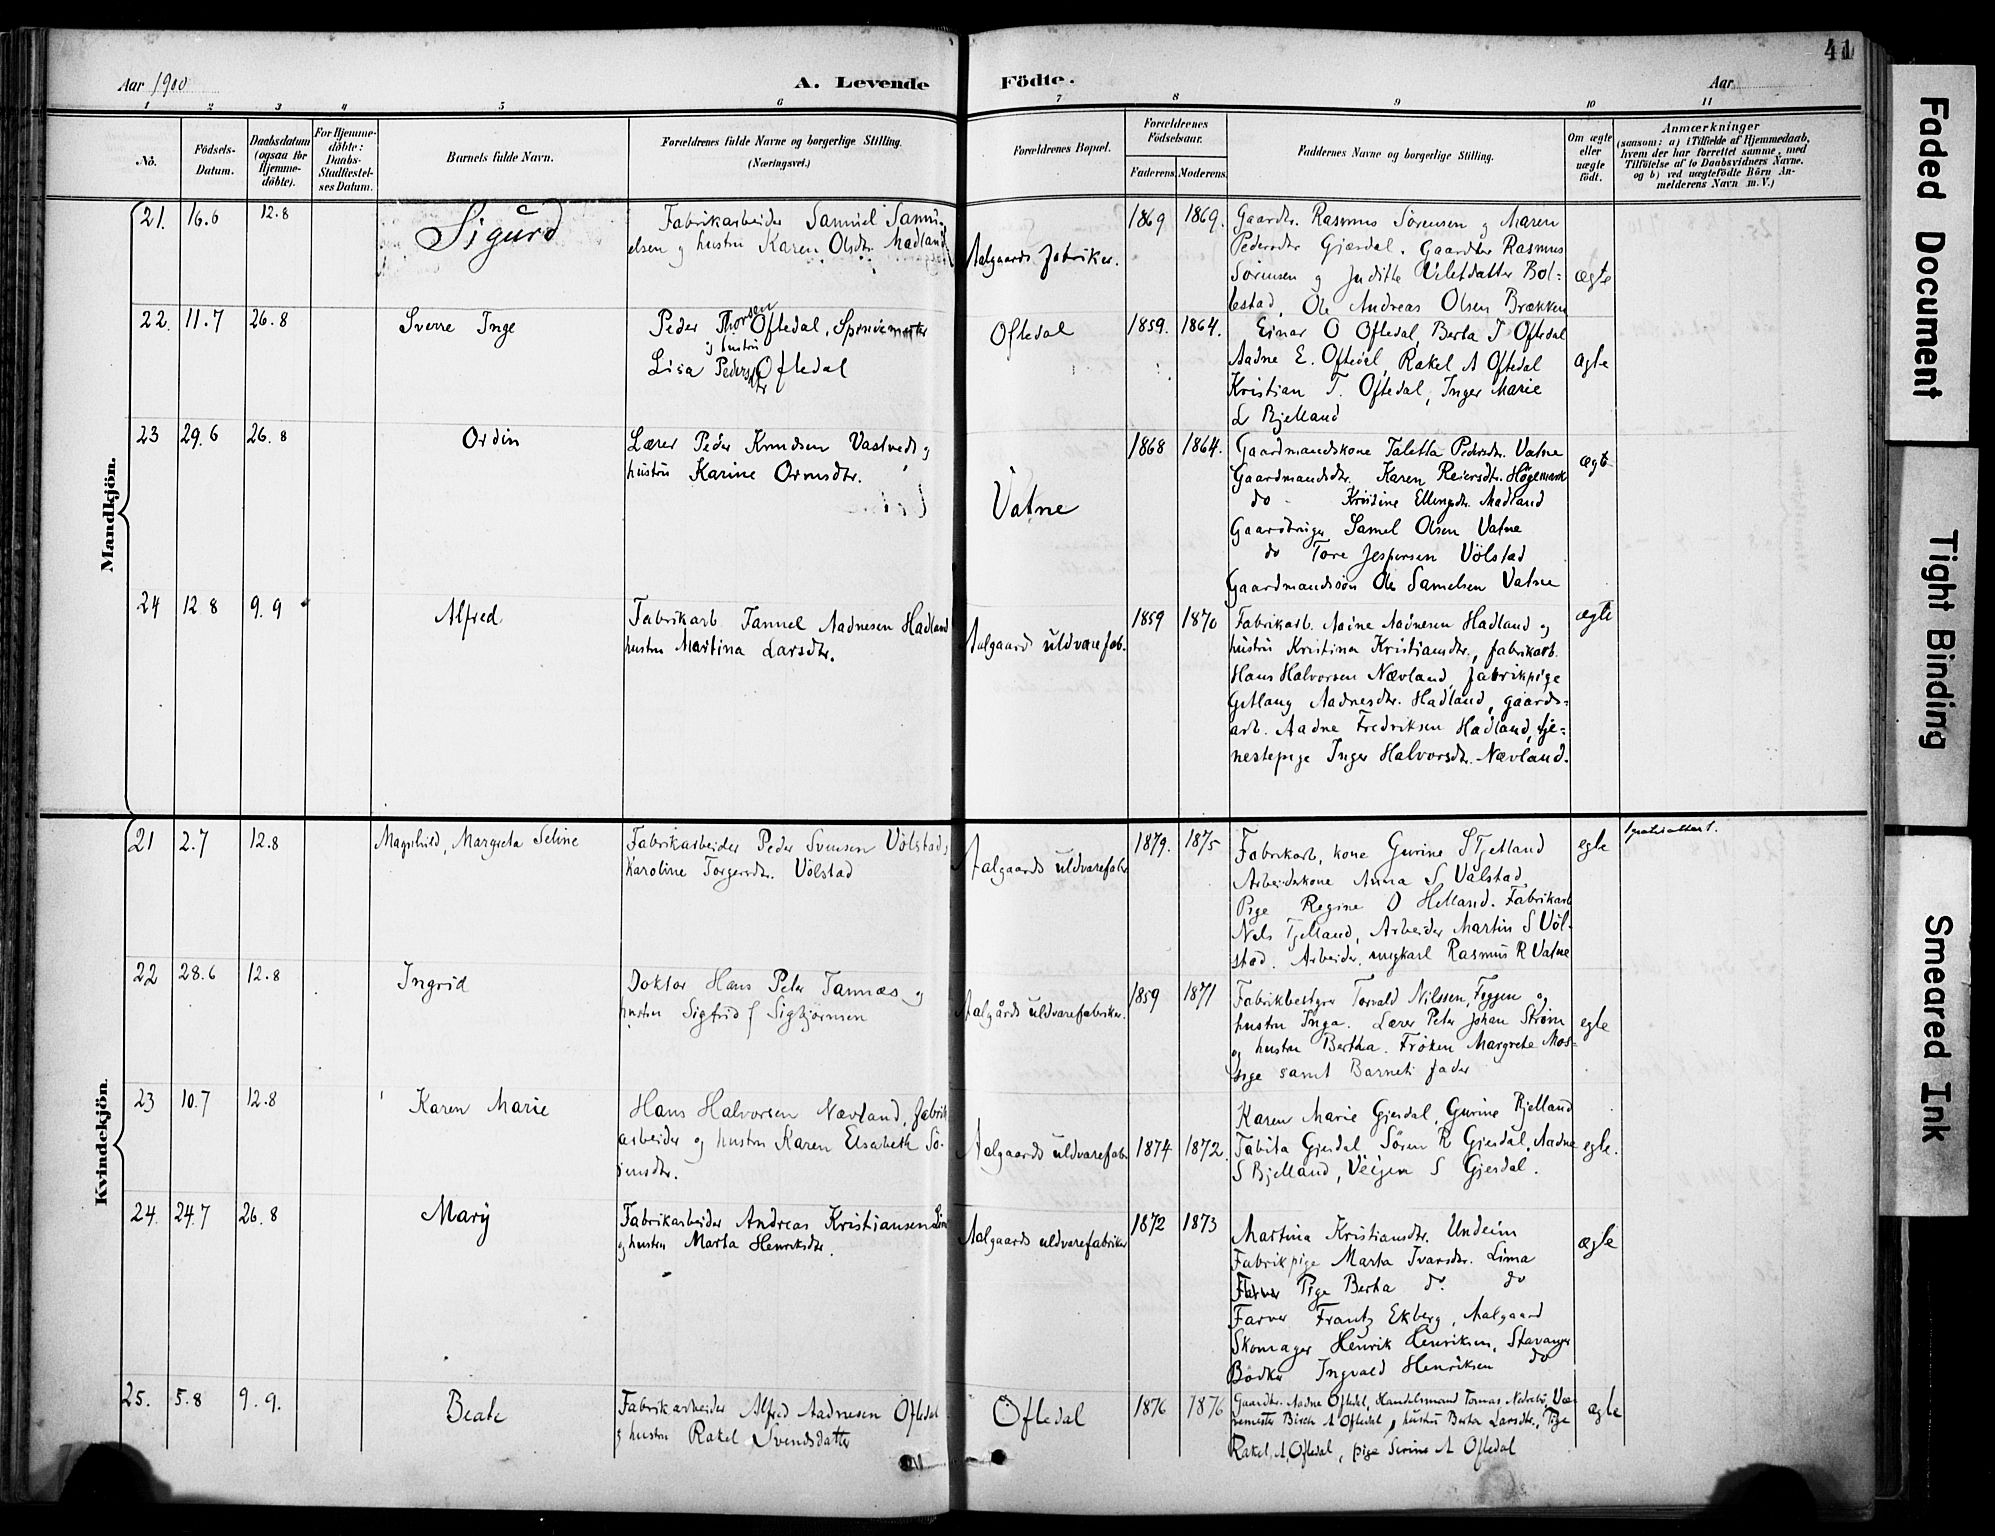 41
Aar 1900
A. Levende Födte.
Aar
1 2 3 4 5 6 7 8 9 10 11
No.
Födsels-
Datum.
Daabsdatum
(ogsaa for
Hjemme-
döbte).
For Hjemme-
döbte:
Daabs-
Stadfæstel-
ses Datum.
Barnets fulde Navn.
Forældrenes fulde Navne og borgerlige Stilling.
(Næringsvei.)
Forældrenes Bopæl.
Forældrenes
Födselsaar.
Faderens Moderens
Faddernes Navne og borgerlige Stilling.
Om ægte
eller
uægte
födt.
Anmærkninger
(saasom: a) i Tilfælde af Hjemmedaab,
hvem der har forrettet samme, med
Tilföielse af to Daabsvidners Navne.
og b) ved uægtefödte Börn An-
melderens Navn m. V.)
Mandkjön.
21. 16.6 12.8 Sigurd
Fabrikarbeider Samuel Samu-
elsen og hustru Karen Olsdtr. Madland
Aalgaards fabriker.
1869 1869.
Gaardbr. Rasmus Sörensen og Maren
Pedersdtr Gjæsdal. Gaardbr Rasmus
Sörensen og Juditte Vilesdatter Bol-
estad, Ole Andreas Olsen Brækken
ægte
22. 11.7 26.8 Sverre Inge
Peder Thorsen Oftedal,
og hustru
Lisa Pedersdtr Oftedal
Oftedal
1859. 1864.
Einar O Oftedal, Berta T Oftedal
Aadne E. Oftedal, Rakel A Oftedal
Kristian T. Oftedal, Inger Marie
L Bjelland
ægte
23 29.6 26.8 Ordin
Lærer Peder Knudsen Vastveds og
hustru Karine Ormsdtr.
Vatne
1868 1864.
Gaardmandskone Taletta Pedersdtr. Vatne
Gaardmandsdtr. Karen Reiersdtr. Högemark
do - Kristine Ellingsdtr. Madland
Gaardbruger Samel Olsen Vatne
do Tore Jespersen Völstad
Gaardmandssön Ole Samelsen Vatne
ægte
24 12 8 9. 9 Alfred
Fabrikarb Tannel Aadnesen Hadland
hustru Martina Larsdtr.
Aalgaards uldvarefab.
1859 1870
Fabrikarb. Aadne Aadnesen Hadland og
hustru Kristina Kristiansdtr., fabrikarb.
Hans Halvorsen Nævland, fabrikpige
Gitlaug Aadnesdtr. Hadland, gaards-
arb. Aadne Fredriksen Hadland, tje-
nestepige Inger Halvorsdtr. Nævland.
ægte
Kvindekjön.
21 2.7 12.8 Magnhild, Margreta Seline
Fabrikarbeider Peder Svensen Völstad,
Karoline Torgersdtr. Völstad
Aalgaards uldvarefabr
1879. 1875
Fabrikarb, kone Gurine S Tjelland
Arbeiderkone Anna S Välstad
Pige Regine O Helland. Fabrikarb
Nels Tjelland, Arbeider Martin S Völ-
stad. Arbeider, ungkarl Rasmus R Vatne
egte
22 28.6 12.8 Ingrid
Doktor Hans Peter Tannæs og
hustru Sigfrid f Sigbjörnsen
Aalgårds uldvarefabriker.
1859 1871
Fabrikbestyr Torvald Nilssen, Feggen og
hustru Inga. Lærer Peter Johan Ström
og hustru Bertha. Fröken Margrethe Mos-
sige samt Barnets fader
egte
23 10.7 12.8 Karen Marie
Hans Halvorsen Nævland, fabrik
arbeider og hustru Karen Elsabeth Sö-
rensdtr.
Aalgaards uldvarefabr
1874 1872.
Karen Marie Gjesdal, Gurine Bjelland
Tabita Gjesdal Sören R Gjesdal, Aadne
S Bjelland, Veigen S Gjesdal.
egte.
24. 24.7 26.8 Mary
Fabrikarbeider Andreas Kristiansen
og hustru Marta Henriksdtr.
Aalgaards uldvarefabriker
1872 1873
Martina Kristiansdtr. Undeim
Fabrikpige Marta Ivarsdtr. Lima
Pige Berta do do
Farver Frantz Ekberg, Aalgaard
Skomager Henrik Henriksen, Stavanger
Bödker Ingvald Henriksen do
ægte
25. 5.8 9. 9. Beate
Fabrikarbeider Alfred Aadnesen Oftedal
og hustru Rakel Svendsdatter
Oftedal
1876 1876
Gaardbr. Aadne Oftedal, Handelsmand Tomas Nedrebö, Væ-
remester A Oftedal, hustru Berta Larsdtr., Pige
Rakel, A, Oftedal, pige Serine A Oftedal
ægte
Faded Document
Tight Binding
Smeared Ink